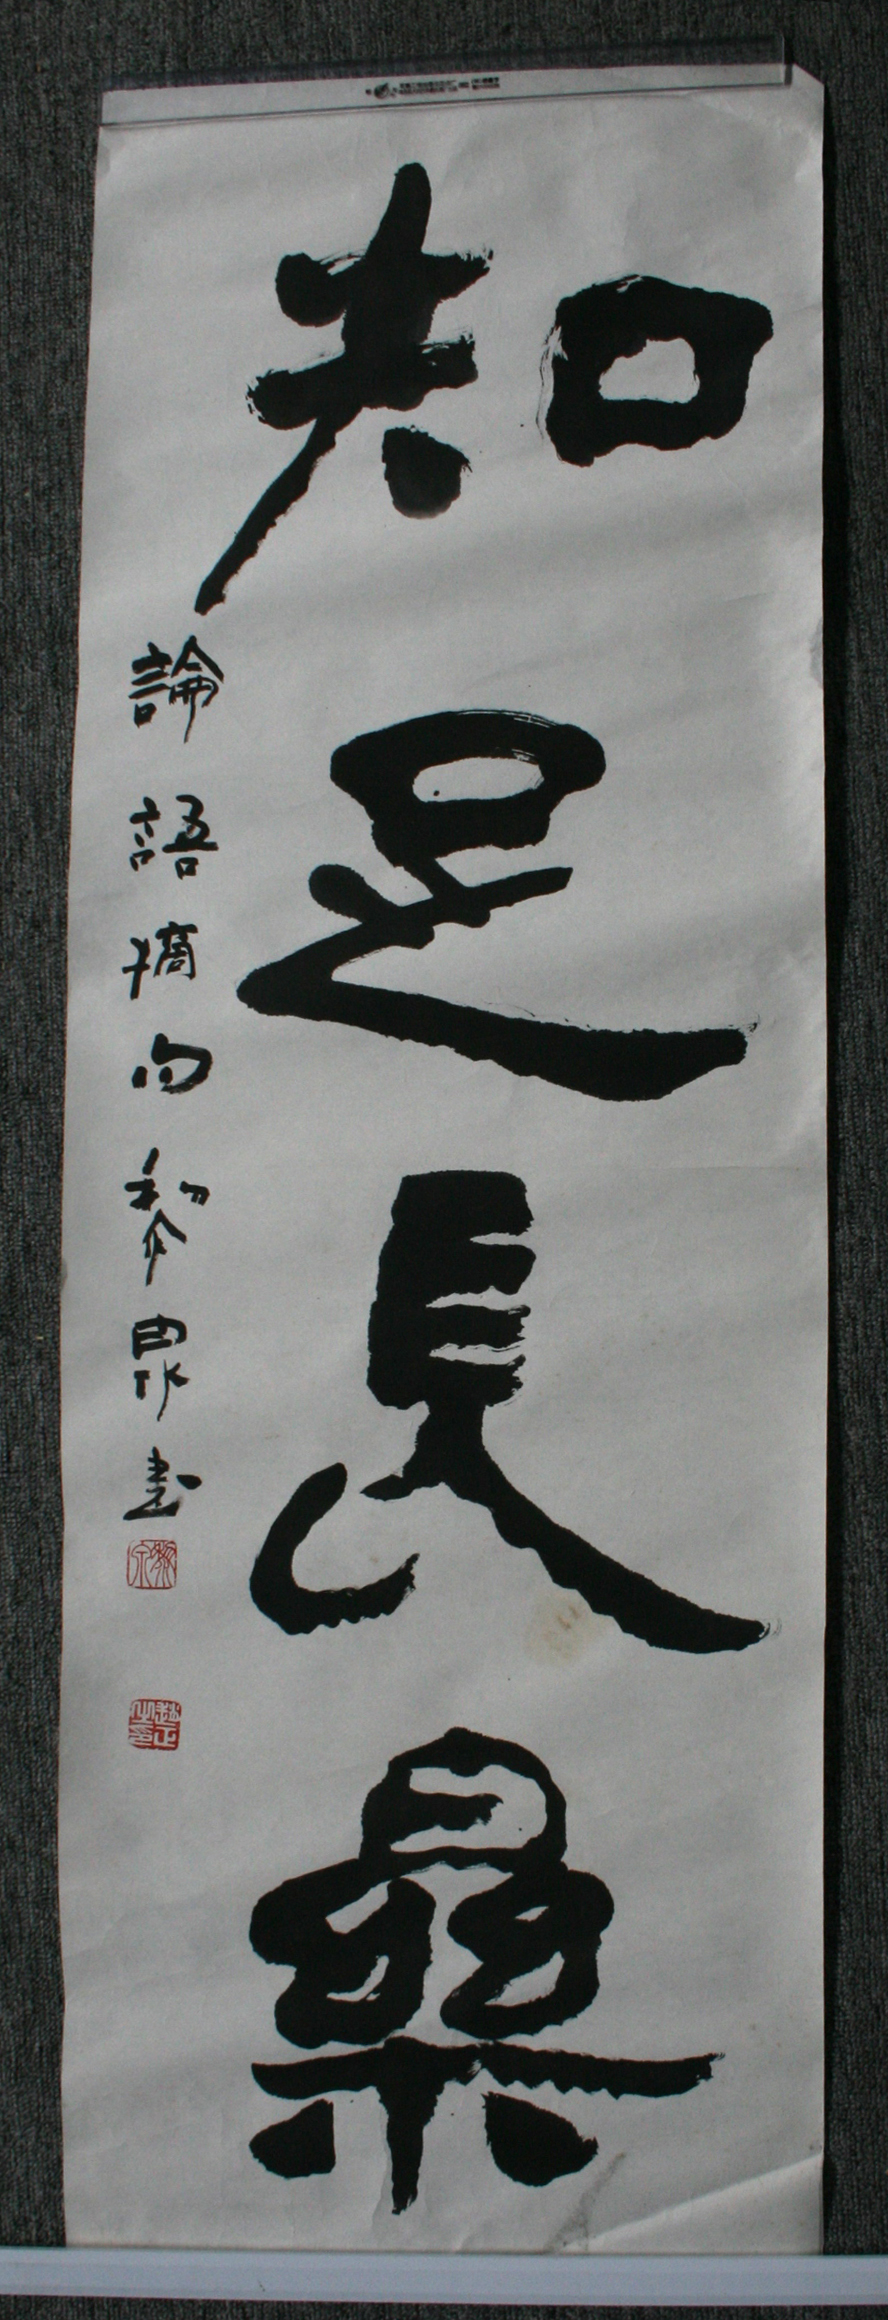 知足長樂
論語摘句黎泉書